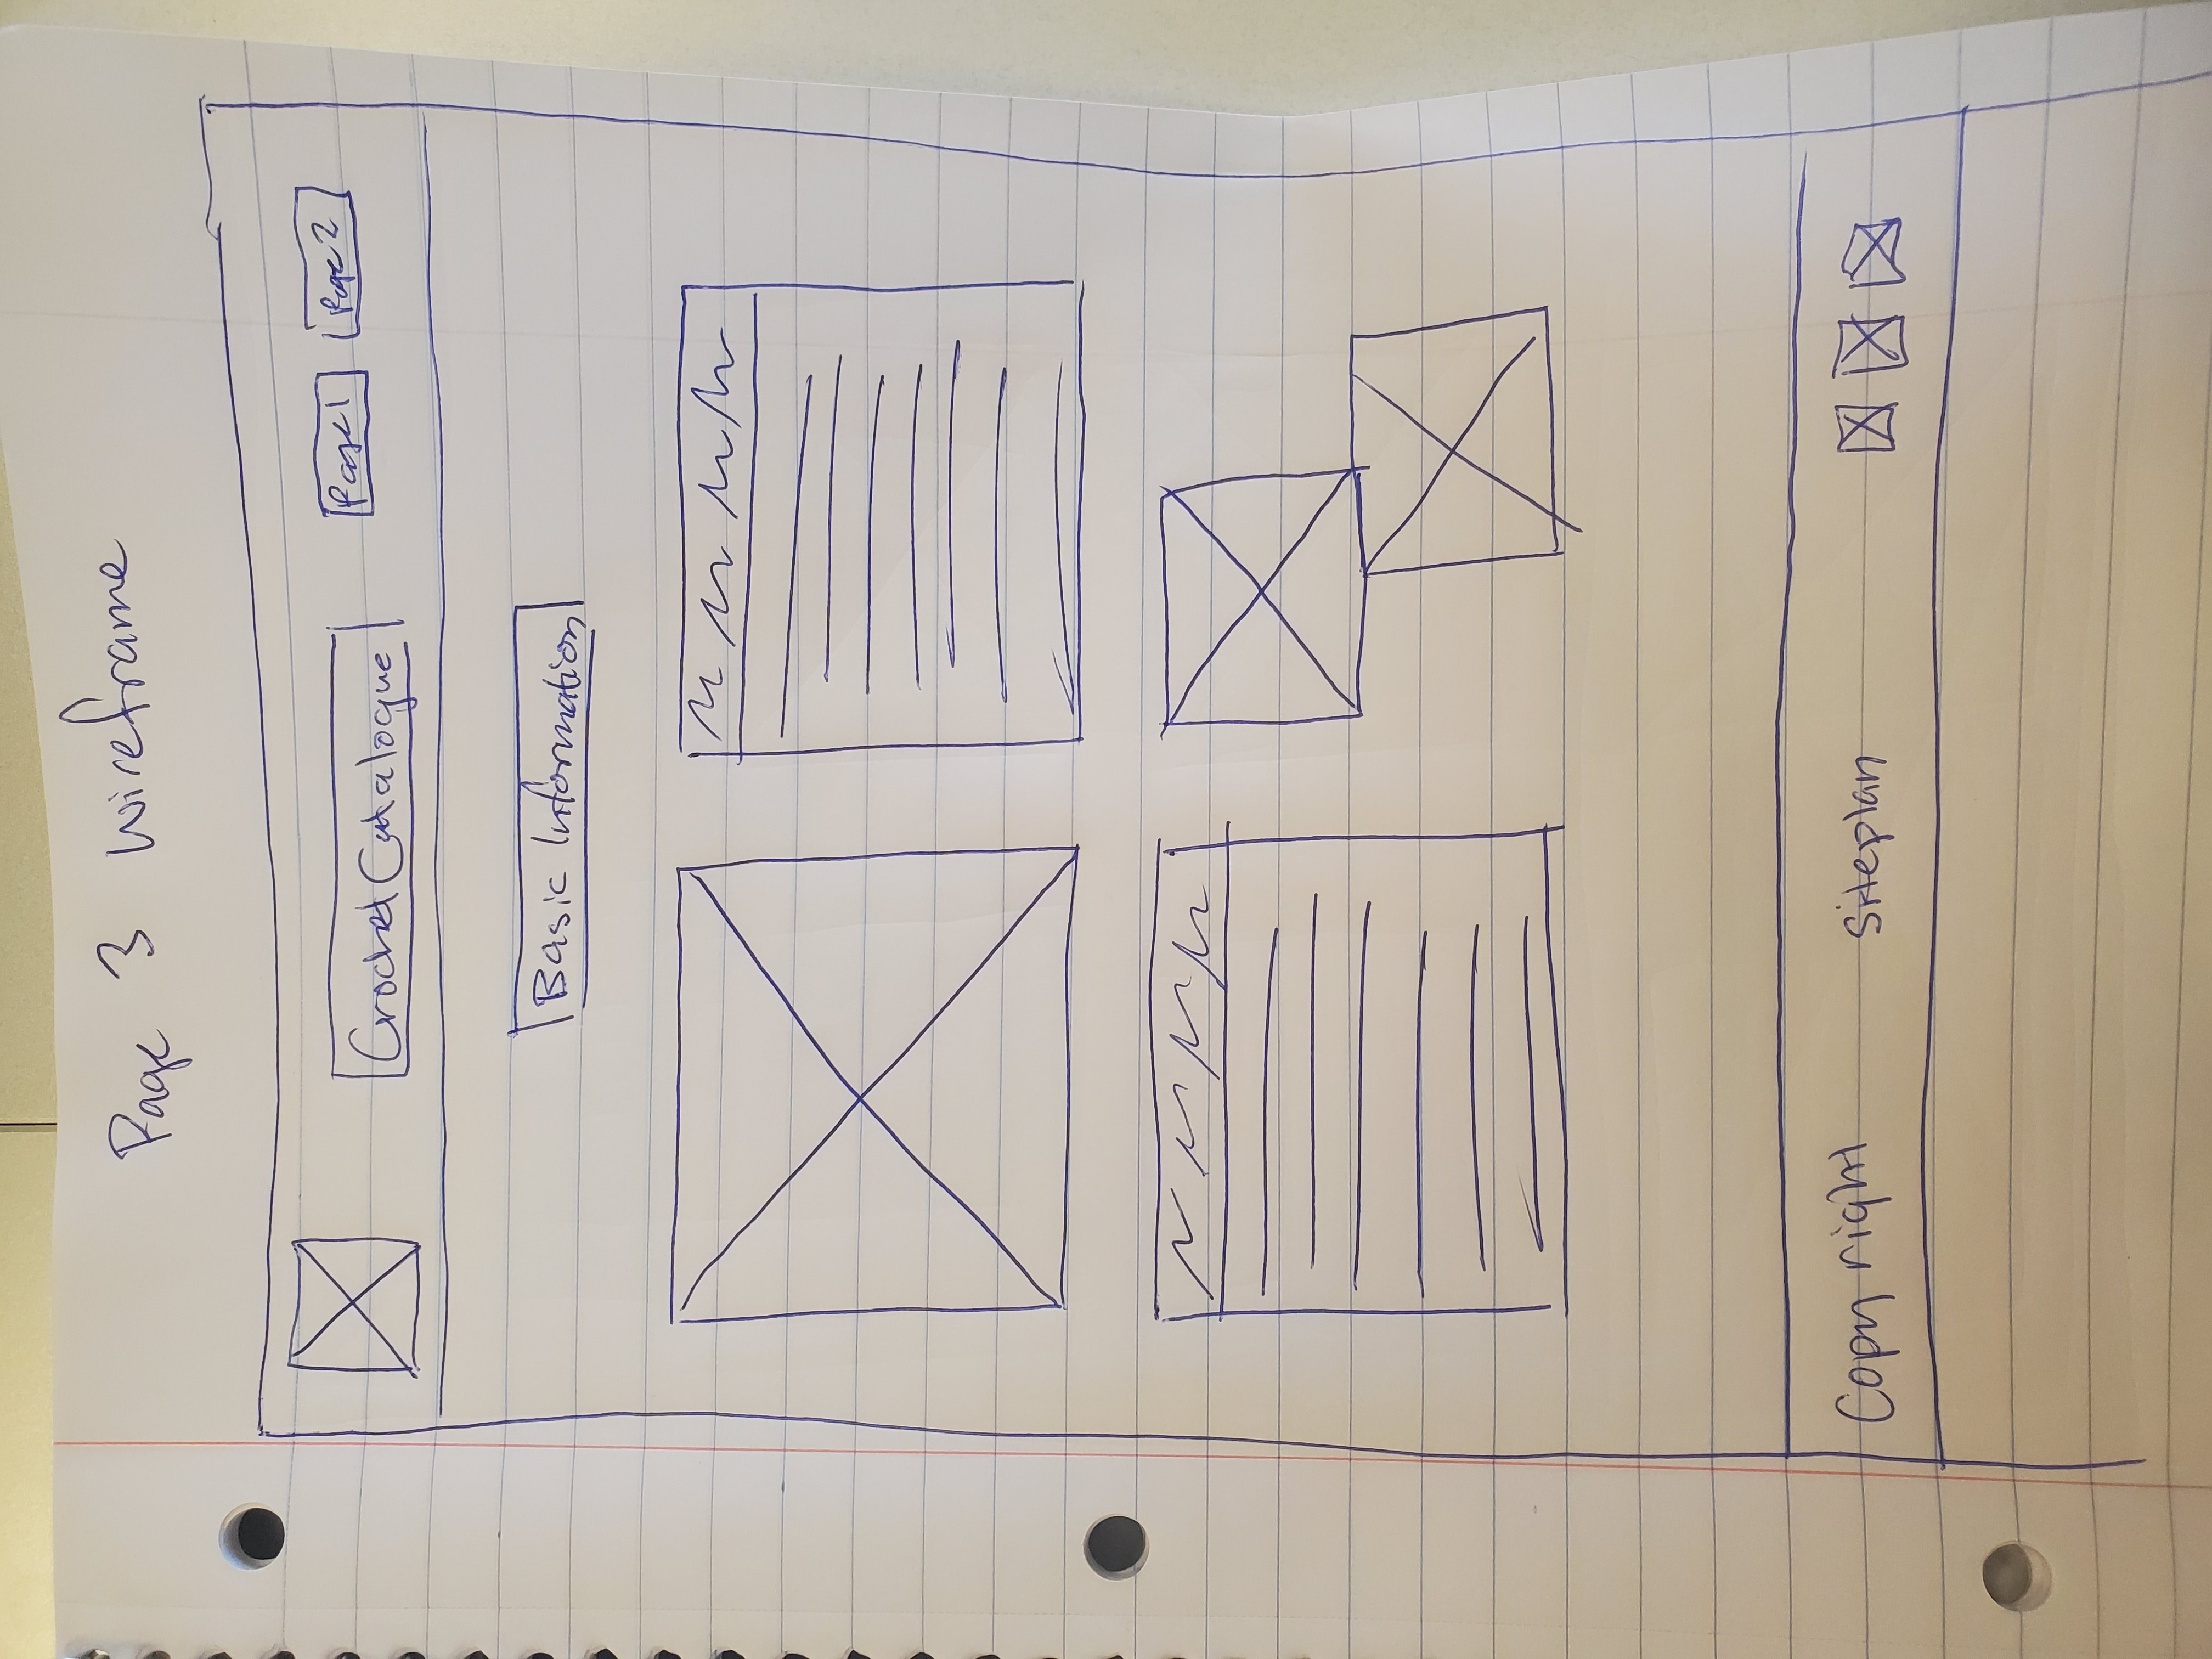 Page 3 Wireframe
Crochet Catalogue
Page 1
Page 2
Basic Information
Copyright
Siteplan